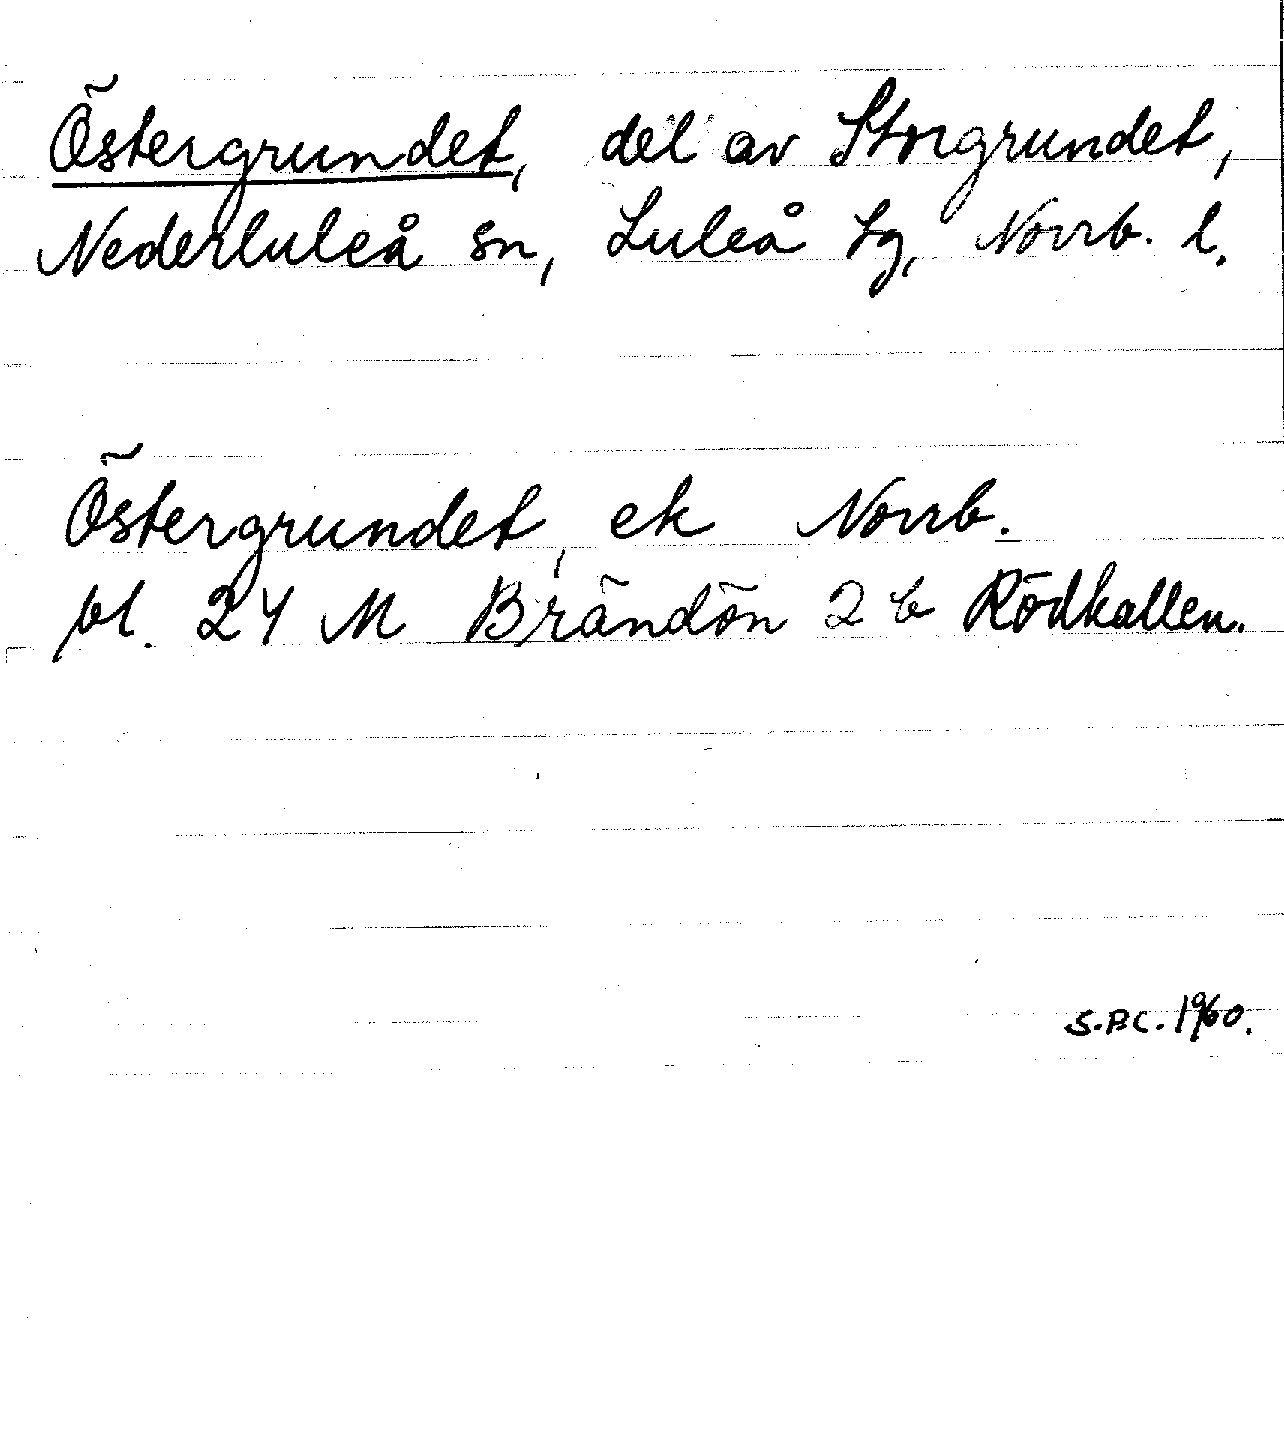 Östergrundet, del av Storgrundet,
Nederluleå sn, Luleå tg, Norrb. l.
Östergrundet, ek Norrb.
bl. 24 M Brändön 2 b Rödkallen.
S.B.C. 1960.